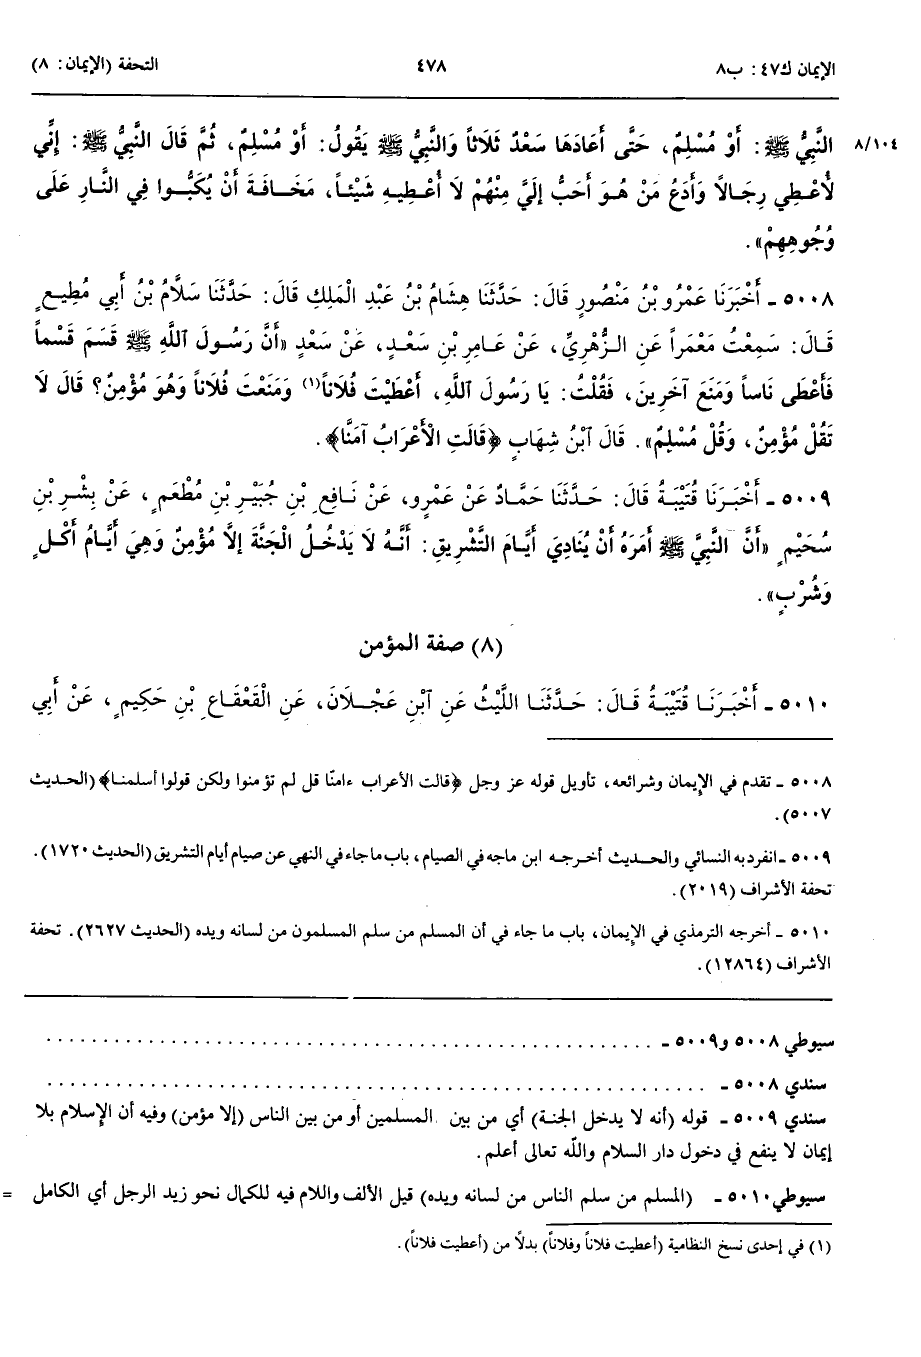 الإيمان ك٤٧: ب٨ ٤٧٨ التحفة (الإيمان: ٨)
٨/١٠٤ النَّبِيُّ ﷺ: أَوْ مُسْلِمٌ، حَتَّى أَعَادَهَا سَعْدٌ ثَلَاثاً وَالنَّبِيُّ ﷺ يَقُولُ: أَوْ مُسْلِمٌ، ثُمَّ قَالَ النَّبِيُّ ﷺ: إِنِّي
لأُعْطِي رِجَالاً وَأَدَعُ مَنْ هُوَ أَحَبُّ إِلَيَّ مِنْهُمْ لَا أُعْطِيهِ شَيْئاً، مَخَافَةَ أَنْ يُكَبُّوا فِي النَّارِ عَلَى
وُجُوهِهِمْ».
٥٠٠٨ - أَخْبَرَنَا عَمْرُو بْنُ مَنْصُورٍ قَالَ: حَدَّثَنَا هِشَامُ بْنُ عَبْدِ الْمَلِكِ قَالَ: حَدَّثَنَا سَلَّامُ بْنُ أَبِي مُطِيعٍ
قَالَ: سَمِعْتُ مَعْمَراً عَنِ الزُّهْرِيِّ، عَنْ عَامِرِ بْنِ سَعْدٍ، عَنْ سَعْدٍ «أَنَّ رَسُولَ اللَّهِ ﷺ قَسَمَ قَسْماً
فَأَعْطَى نَاساً وَمَنَعَ آخَرِينَ، فَقُلْتُ: يَا رَسُولَ اللَّهِ، أَعْطَيْتَ فُلَاناً(١) وَمَنَعْتَ فُلَاناً وَهُوَ مُؤْمِنٌ؟ قَالَ لَا
تَقُلْ مُؤْمِنٌ، وَقُلْ مُسْلِمٌ». قَالَ ٱبْنُ شِهَابٍ ﴿قَالَتِ الْأَعْرَابُ آمَنَّا﴾.
٥٠٠٩ - أَخْبَرَنَا قُتَيْبَةُ قَالَ: حَدَّثَنَا حَمَّادٌ عَنْ عَمْرٍو، عَنْ نَافِعِ بْنِ جُبَيْرِ بْنِ مُطْعَمٍ، عَنْ بِشْرِ بْنِ
سُحَيْمٍ «أَنَّ النَّبِيَّ ﷺ أَمَرَهُ أَنْ يُنَادِيَ أَيَّامَ التَّشْرِيقِ: أَنَّهُ لَا يَدْخُلُ الْجَنَّةَ إِلَّا مُؤْمِنٌ وَهِيَ أَيَّامُ أَكْلٍ
وَشُرْبٍ».
(٨) صفة المؤمن
٥٠١٠ - أَخْبَرَنَا قُتَيْبَةُ قَالَ: حَدَّثَنَا اللَّيْثُ عَنِ ٱبْنِ عَجْلَانَ، عَنِ الْقَعْقَاعِ بْنِ حَكِيمٍ، عَنْ أَبِي
٥٠٠٨ - تقدم في الإيمان وشرائعه، تأويل قوله عز وجل ﴿قالت الأعراب ءامنّا قل لم تؤمنوا ولكن قولوا أسلمنا﴾ (الحديث
٥٠٠٧).
٥٠٠٩ - انفرد به النسائي والحديث أخرجه ابن ماجه في الصيام، باب ما جاء في النهي عن صيام أيام التشريق (الحديث ١٧٢٠).
تحفة الأشراف (٢٠١٩).
٥٠١٠ - أخرجه الترمذي في الإيمان، باب ما جاء في أن المسلم من سلم المسلمون من لسانه ويده (الحديث ٢٦٢٧). تحفة
الأشراف (١٢٨٦٤).
سيوطي ٥٠٠٨ و٥٠٠٩ - ....................................................
سندي ٥٠٠٨ - ........................................................
سندي ٥٠٠٩ - قوله (أنه لا يدخل الجنة) أي من بين المسلمين أو من بين الناس (إلا مؤمن) وفيه أن الإسلام بلا
إيمان لا ينفع في دخول دار السلام والله تعالى أعلم.
سيوطي ٥٠١٠ - (المسلم من سلم الناس من لسانه ويده) قيل الألف واللام فيه للكمال نحو زيد الرجل أي الكامل =
(١) في إحدى نسخ النظامية (أعطيت فلاناً وفلاناً) بدلاً من (أعطيت فلاناً).